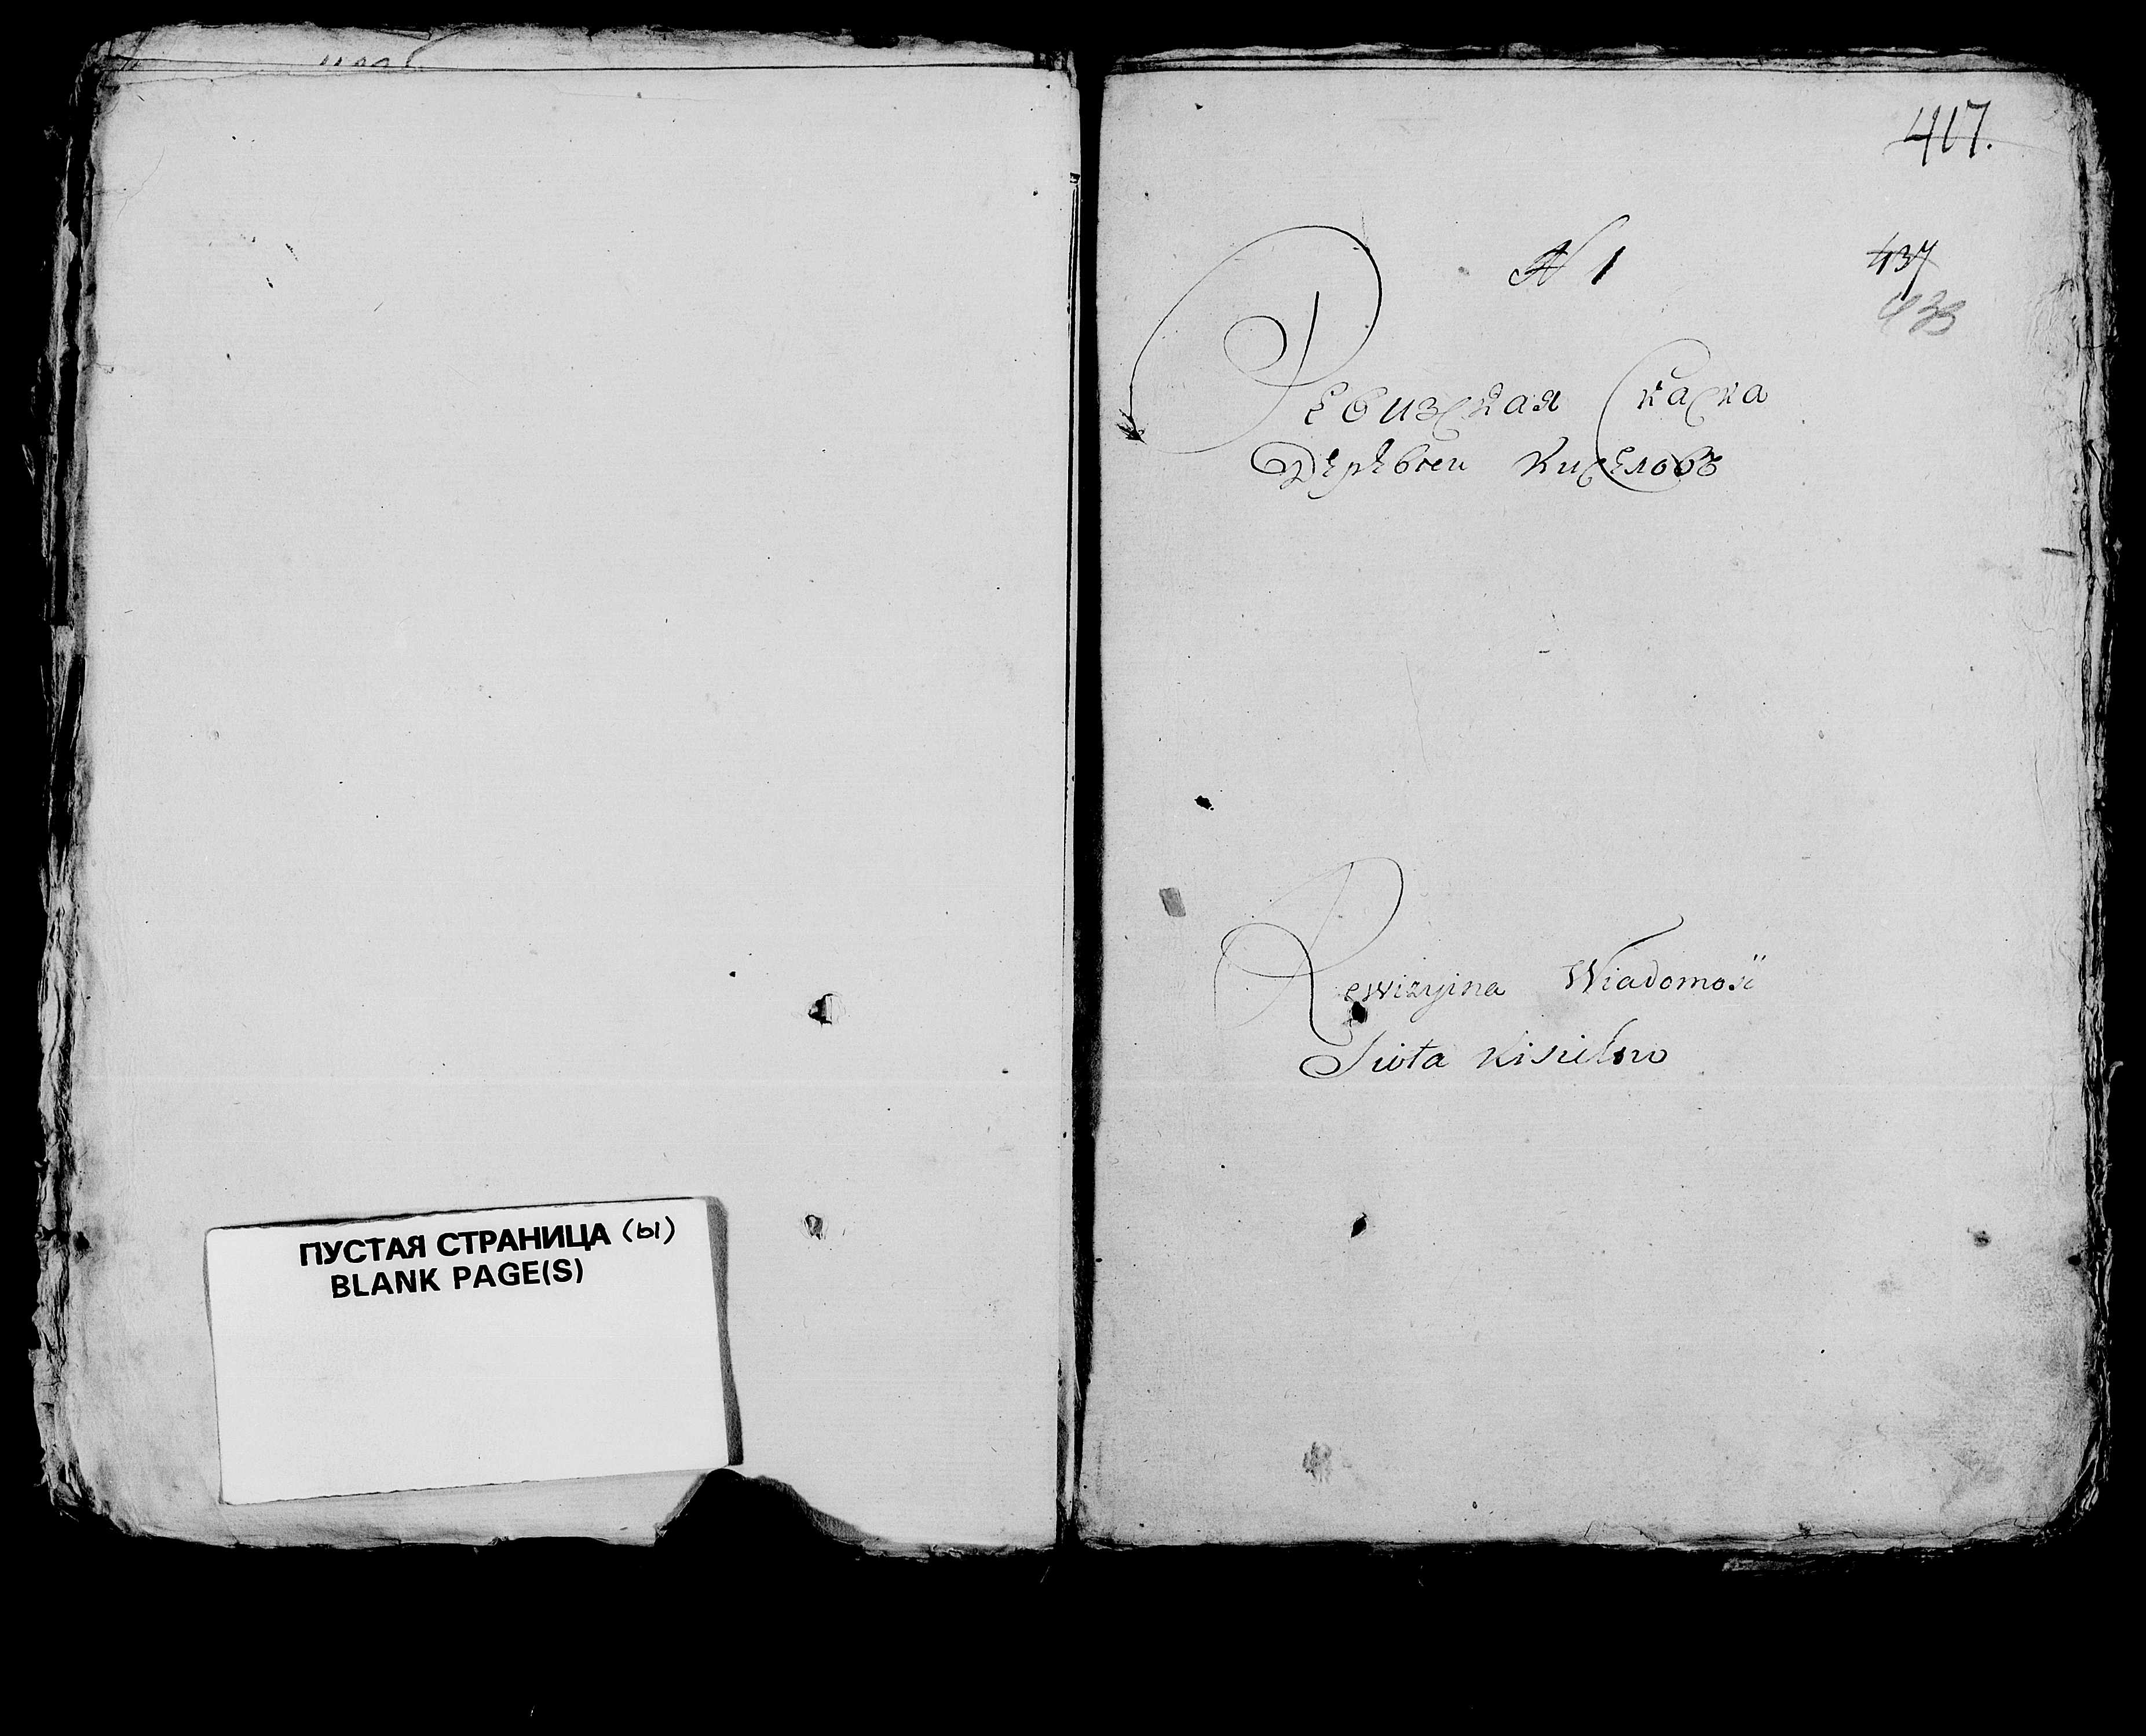 ПУСТАЯ СТРАНИЦА (ы)
BLANK PAGE(S)
417.
N 1
437
438
Ревизская Скаска
Деревни Киселовъ
Rewizyina Wiadomość
Kisielow